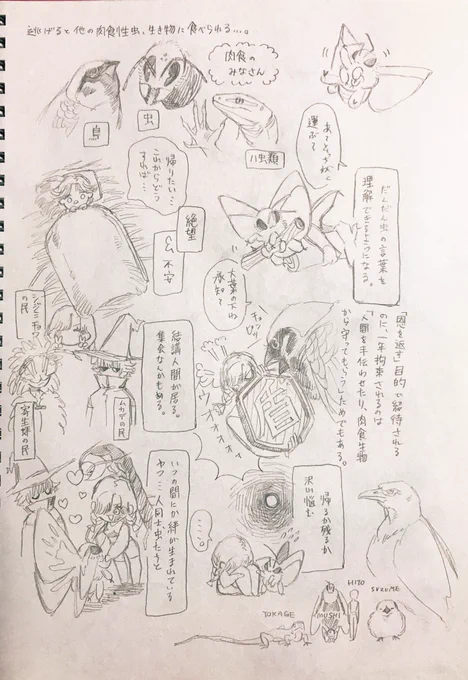 逃げると他の肉食性虫、生き物に食べられる…。
肉食の
みなさん
鳥
虫
ハ虫類
あっとうがよく
運ぶて
だんだん虫の言葉を
理解できるようになる。
帰りたい…
これからどう
すれば…
絶望
&不安
大葉の下ね
承知て
「恩を返す」目的で招待される
のに、一年拘束されるのは
「人間を手伝わせたり、肉食生物
から守ってもらうしためでもある。
の民
寄生蜂の民
ムカデの民
結構人間が居る。
集会なんかもある。
管
ウオオオォ
いつの間にか絆が生まれている
ヤツ…人間士虫たちと
帰るか残るか
沢山悩む
…。
TOKAGE
MUSHI
HITO
SUZUME